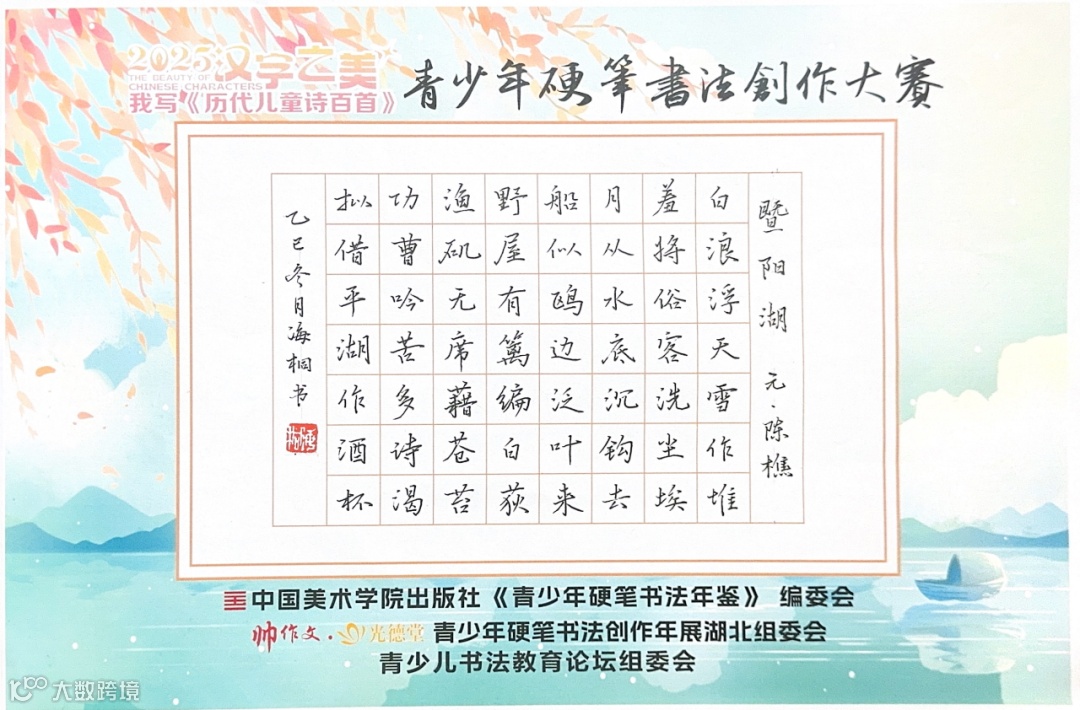 2025汉字之美
THE BEAUTY OF
CHINESE CHARACTERS
我写《历代儿童诗百首》
青少年硬筆書法創作大賽
暨阳湖 元·陈樵
白浪浮天雪作堆
羞将俗客洗尘埃
月从水底沉钩去
船似鸥边泛叶来
野屋有篱编白荻
渔矶无席藉苍苔
功曹吟苦多诗渴
拟借平湖作酒杯
乙巳冬月海桐书
中国美术学院出版社《青少年硬笔书法年鉴》 编委会
帅作文·光德堂 青少年硬笔书法创作年展湖北组委会
青少儿书法教育论坛组委会
大数跨境